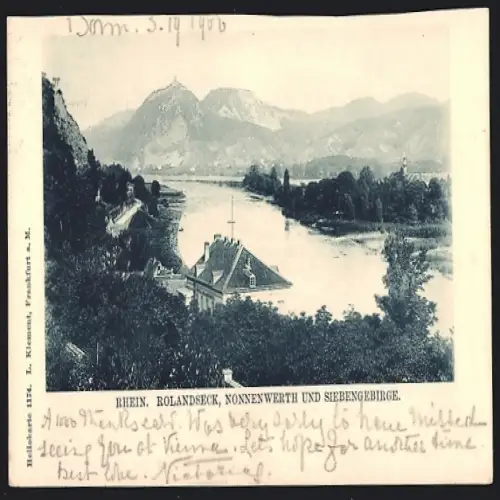 Bonn. 3.19 1906
RHEIN. ROLANDSECK, NONNENWERTH UND SIEBENGEBIRGE.
Heliokarte 1174. L. Klement, Frankfurt a. M.
Was very sorry to have missed
seeing you at Vienna. Let's hope for another time.
best love. Victoria.